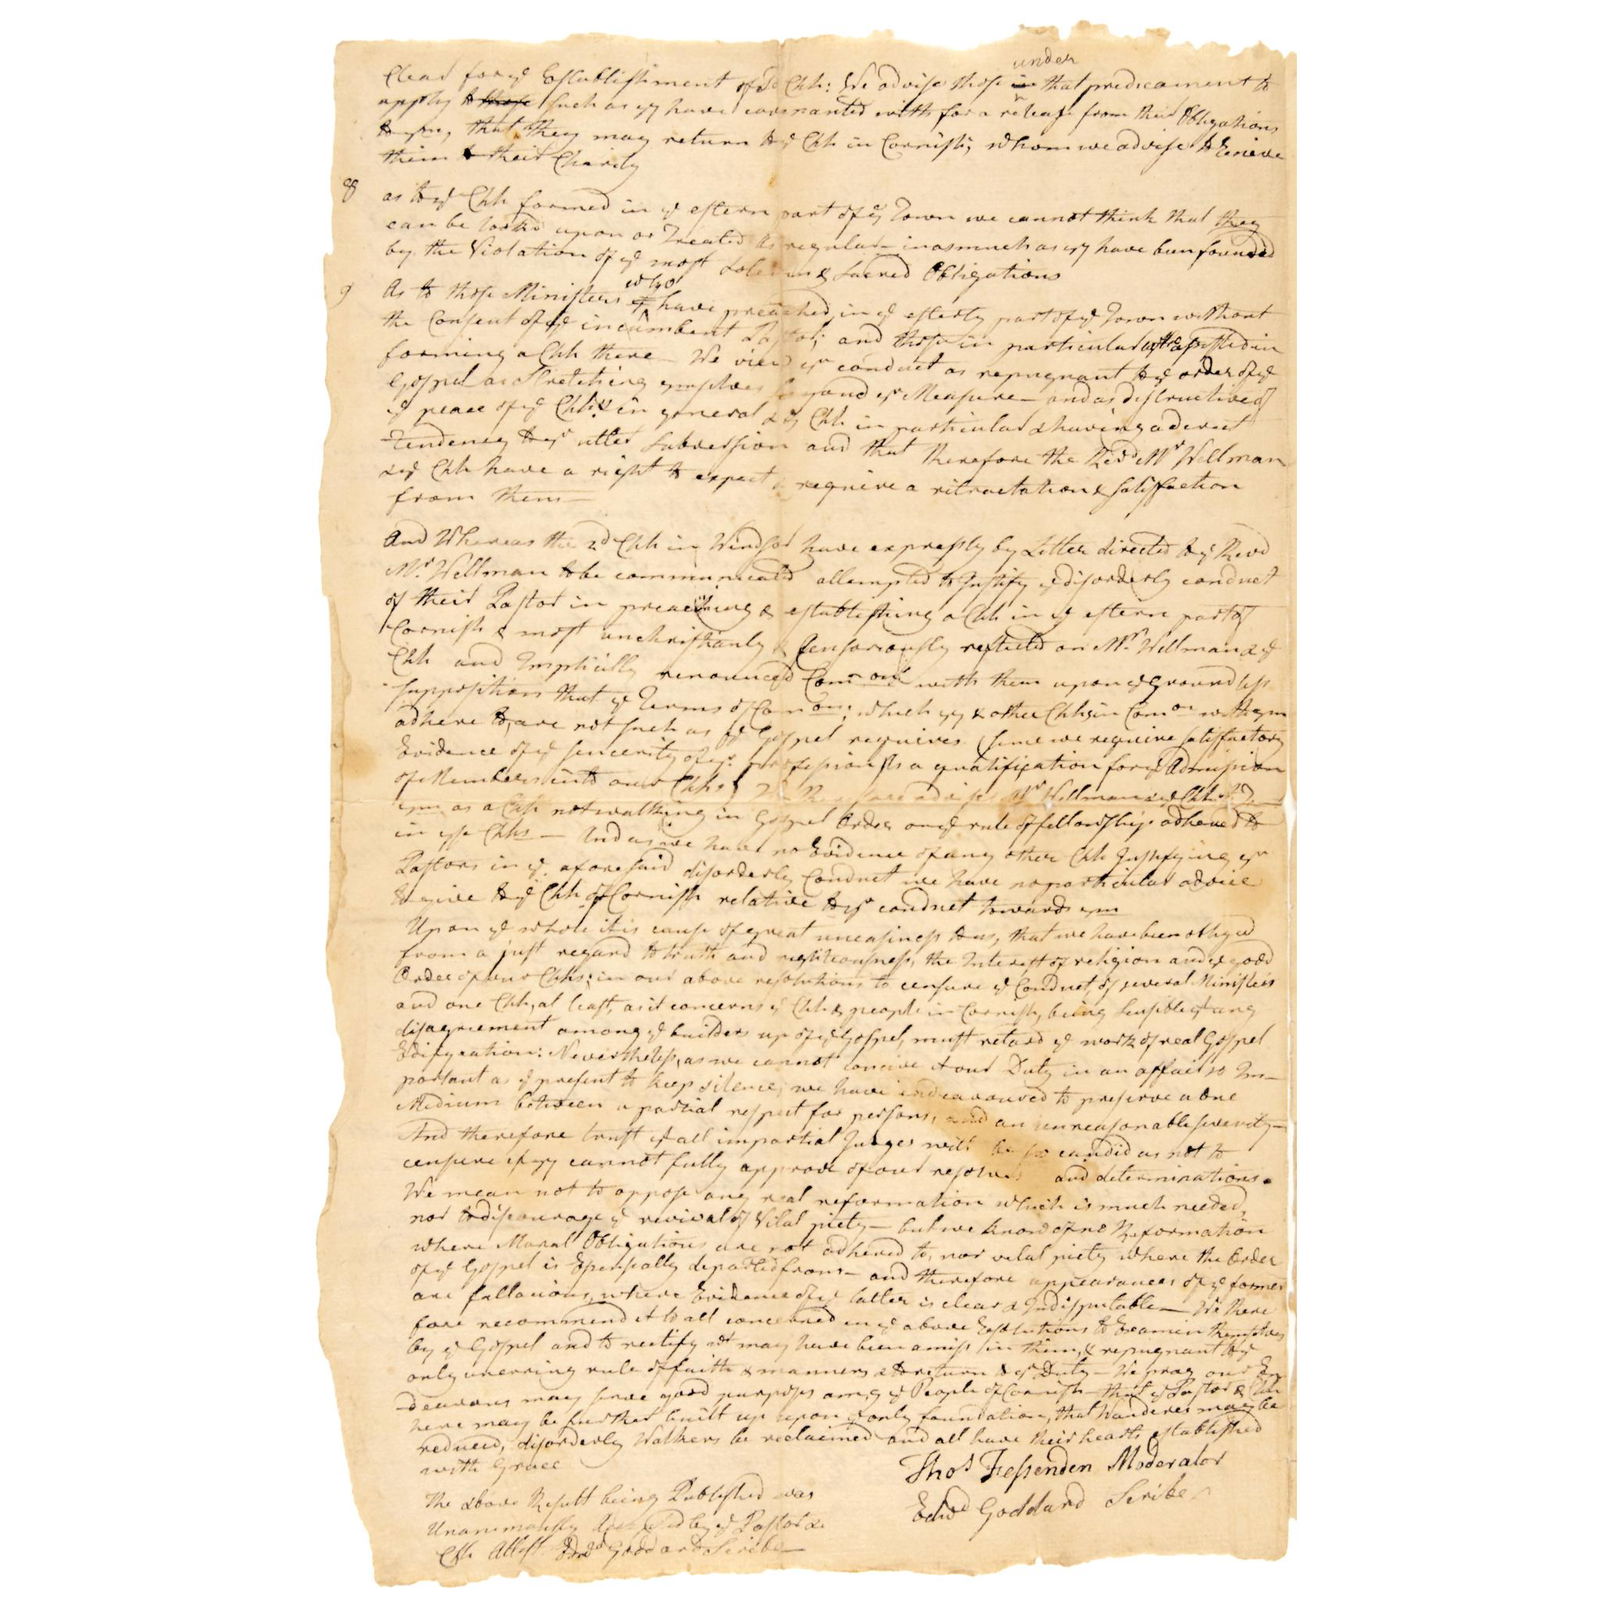 under
Clear for ye Establishment of sd Chh: We advise those in that predicament to
apply to those such as yy have covenanted with for a releas from their Obligations
to ym, that they may return to ye Chh in Cornish; whom we advise to Receive
them to their Charity
8 as to ye Chh formed in ye estern part of ys Town we cannot think that they
can be look'd upon or Treated as regular inasmuch as yy have been founded
by the Violation of ye most Solemn & Sacred Obligations
who
9 As to those Ministers yt have preached in ye esterly part of ye Town without
the Consent of ye incumbent Pastor; and those in particular who assisted in
forming a Chh there We view yr conduct as repugnant to ye order of ye
Gospel as Stretching ymselves beyond yr Measure and as distructive of
ye peace of ye Chhs in general & ys Chh in particular & having a direct
Tendency to yr utter Subversion and that therefore the Revd Mr Wellman
& ye Chh have a right to expect & require a retractation & satisfaction
from them
And Whereas the 2d Chh in Windsor have expressly by Letter directed to ye Revd
Mr. Wellman to be communicated attempted to Justify ye disorderly conduct
of their Pastor in preaching & establishing a Chh in ye estern part of
Cornish & most unchristianly & Censoriously reflected on Mr. Wellman & ye
Chh and Implicitly renounced Comon with them upon ye Groundless
supposition that ye Terms of Comon; which yy & other Chhs in Comon with ym
adhere to, are not such as ye Gospel requires (since we require satisfactory
Evidence of ye sincerity of yr profession as a qualification for ye Admission
of Members into our Chhs) We therefore advise Mr Wellman & ye Chh to
ym as a Chh not walking in Gospel Order on ye rule of fellowship adhered to
in yse Chhs — And as we have no Evidence of any other Chh Justifying yr
Pastors in ye aforesaid disorderly Conduct we have no particular advice
to give to ye Chh of Cornish relative to yr conduct towards ym
Upon ye whole it is cause of great uneasiness to us, that we have been obliged
from a just regard to truth and righteousness, the Interest of religion and ye good
Order of our Chhs; in our above resolutions to censure ye Conduct of several Ministers
and one Chh, at least, as it concerns ye Chh & people in Cornish, being sensible yt any
disagreement among ye builders up of ye Gospel, must retard ye work of real Gospel
Edification: Nevertheless, as we cannot conceive it our Duty in an affair so Im-
portant as ye present to keep silence; we have indeavoured to preserve a due
Medium between a partial respect for persons, and an unreasonable severity—
And therefore trust yt all impartial Judges will be so candid as not to
censure if yy cannot fully approve of our resolves and determinations.
We mean not to oppose any real reformation which is much needed,
nor to discourage ye revival of Vital piety— but we know of no Reformation
where Moral Obligations are not adhered to, nor vital piety where the Order
of ye Gospel is Especially departed from— and therefore appearances of ye former
are fallacious, where Evidence of ye latter is clear & Indisputable— We there
fore recommend it to all concerned in ye above Resolutions to Examin themselves
by ye Gospel and to rectify wt may have been amiss in them, & repugnant to ye
only unerring rule of faith & manners & to return to yr Duty— We pray our En-
deavours may serve good purposes among ye People of Cornish that ye Pastor & Chh
here may be further built up upon ye only foundation, that Wanderers may be
reduced, disorderly Walkers be reclaimed and all have their hearts established
with Grace
Thos Fessenden Moderator
Edwd Goddard Scribe
The above Result being Published was
Unanimously Accepted by ye Pastor &
Chh Attest Edwd Goddard Scribe—